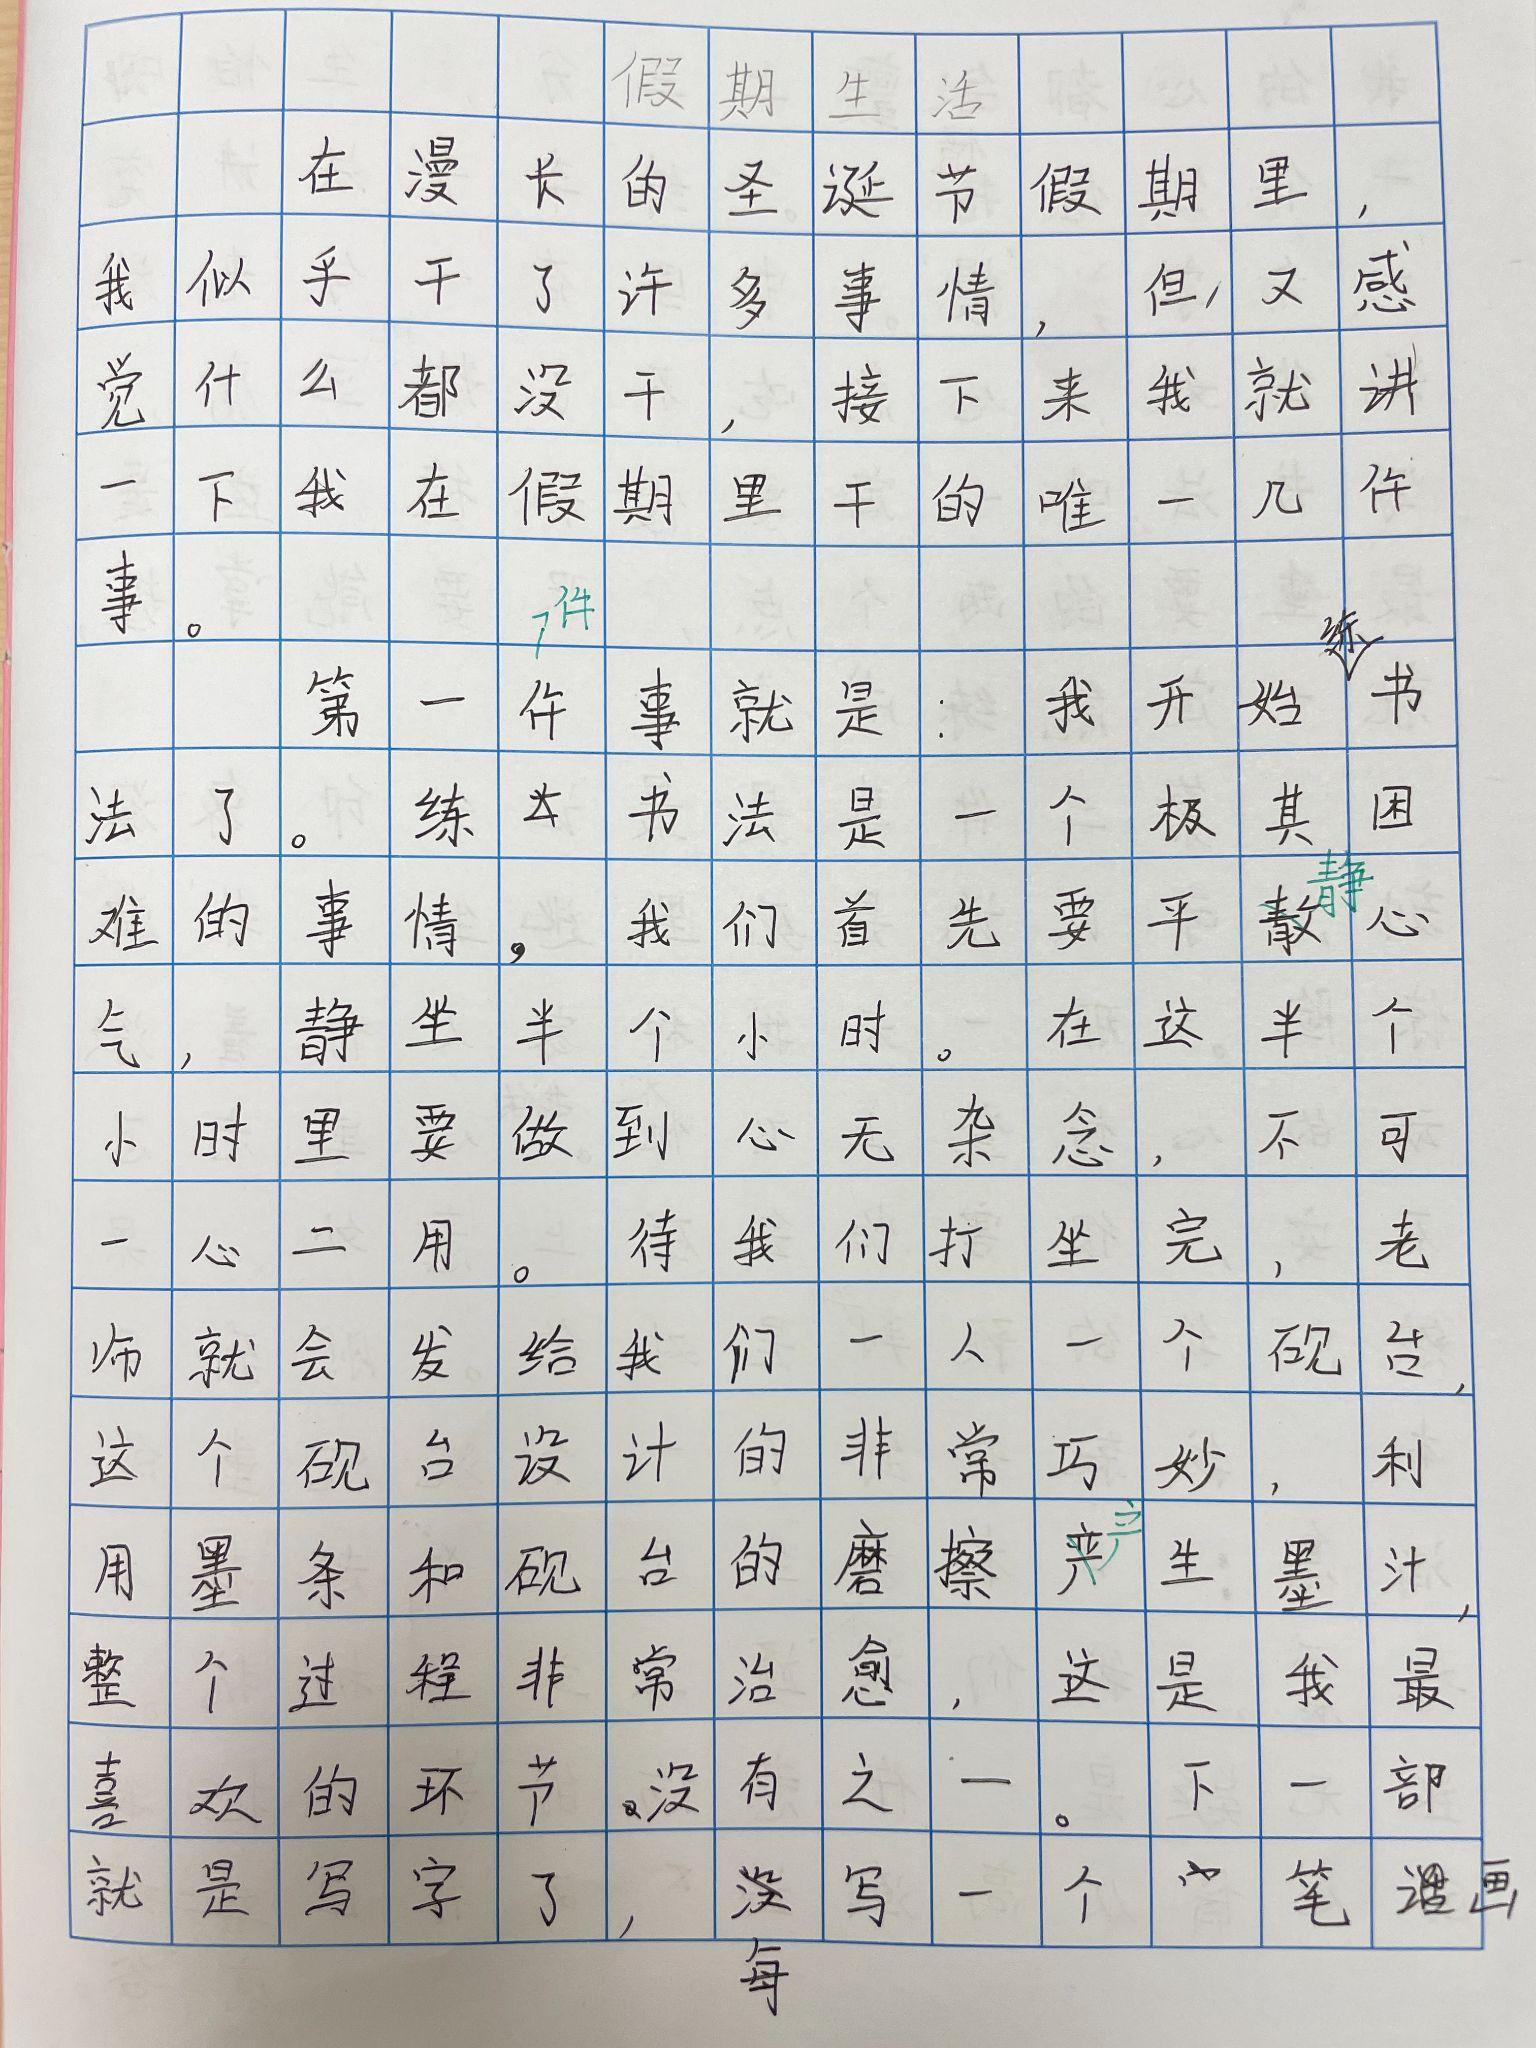 假期生活
在漫长的圣诞节假期里，
我似乎干了许多事情，但，又感
觉什么都没干，接下来我就讲
一下我在假期里干的唯一几件
事。
件
练
第一件事就是：我开始书
法了。练书法是一个极其困
静
难的事情，我们首先要平心
气，静坐半个小时。在这半个
小时里要做到心无杂念，不可
一心二用。待我们打坐完，老
师就会发给我们一人一个砚台，
这个砚台设计的非常巧妙，利
产
用墨条和砚台的磨擦产生墨汁，
整个过程非常治愈，这是我最
喜欢的环节。没有之一。下一部
就是写字了，没写一个笔画
每